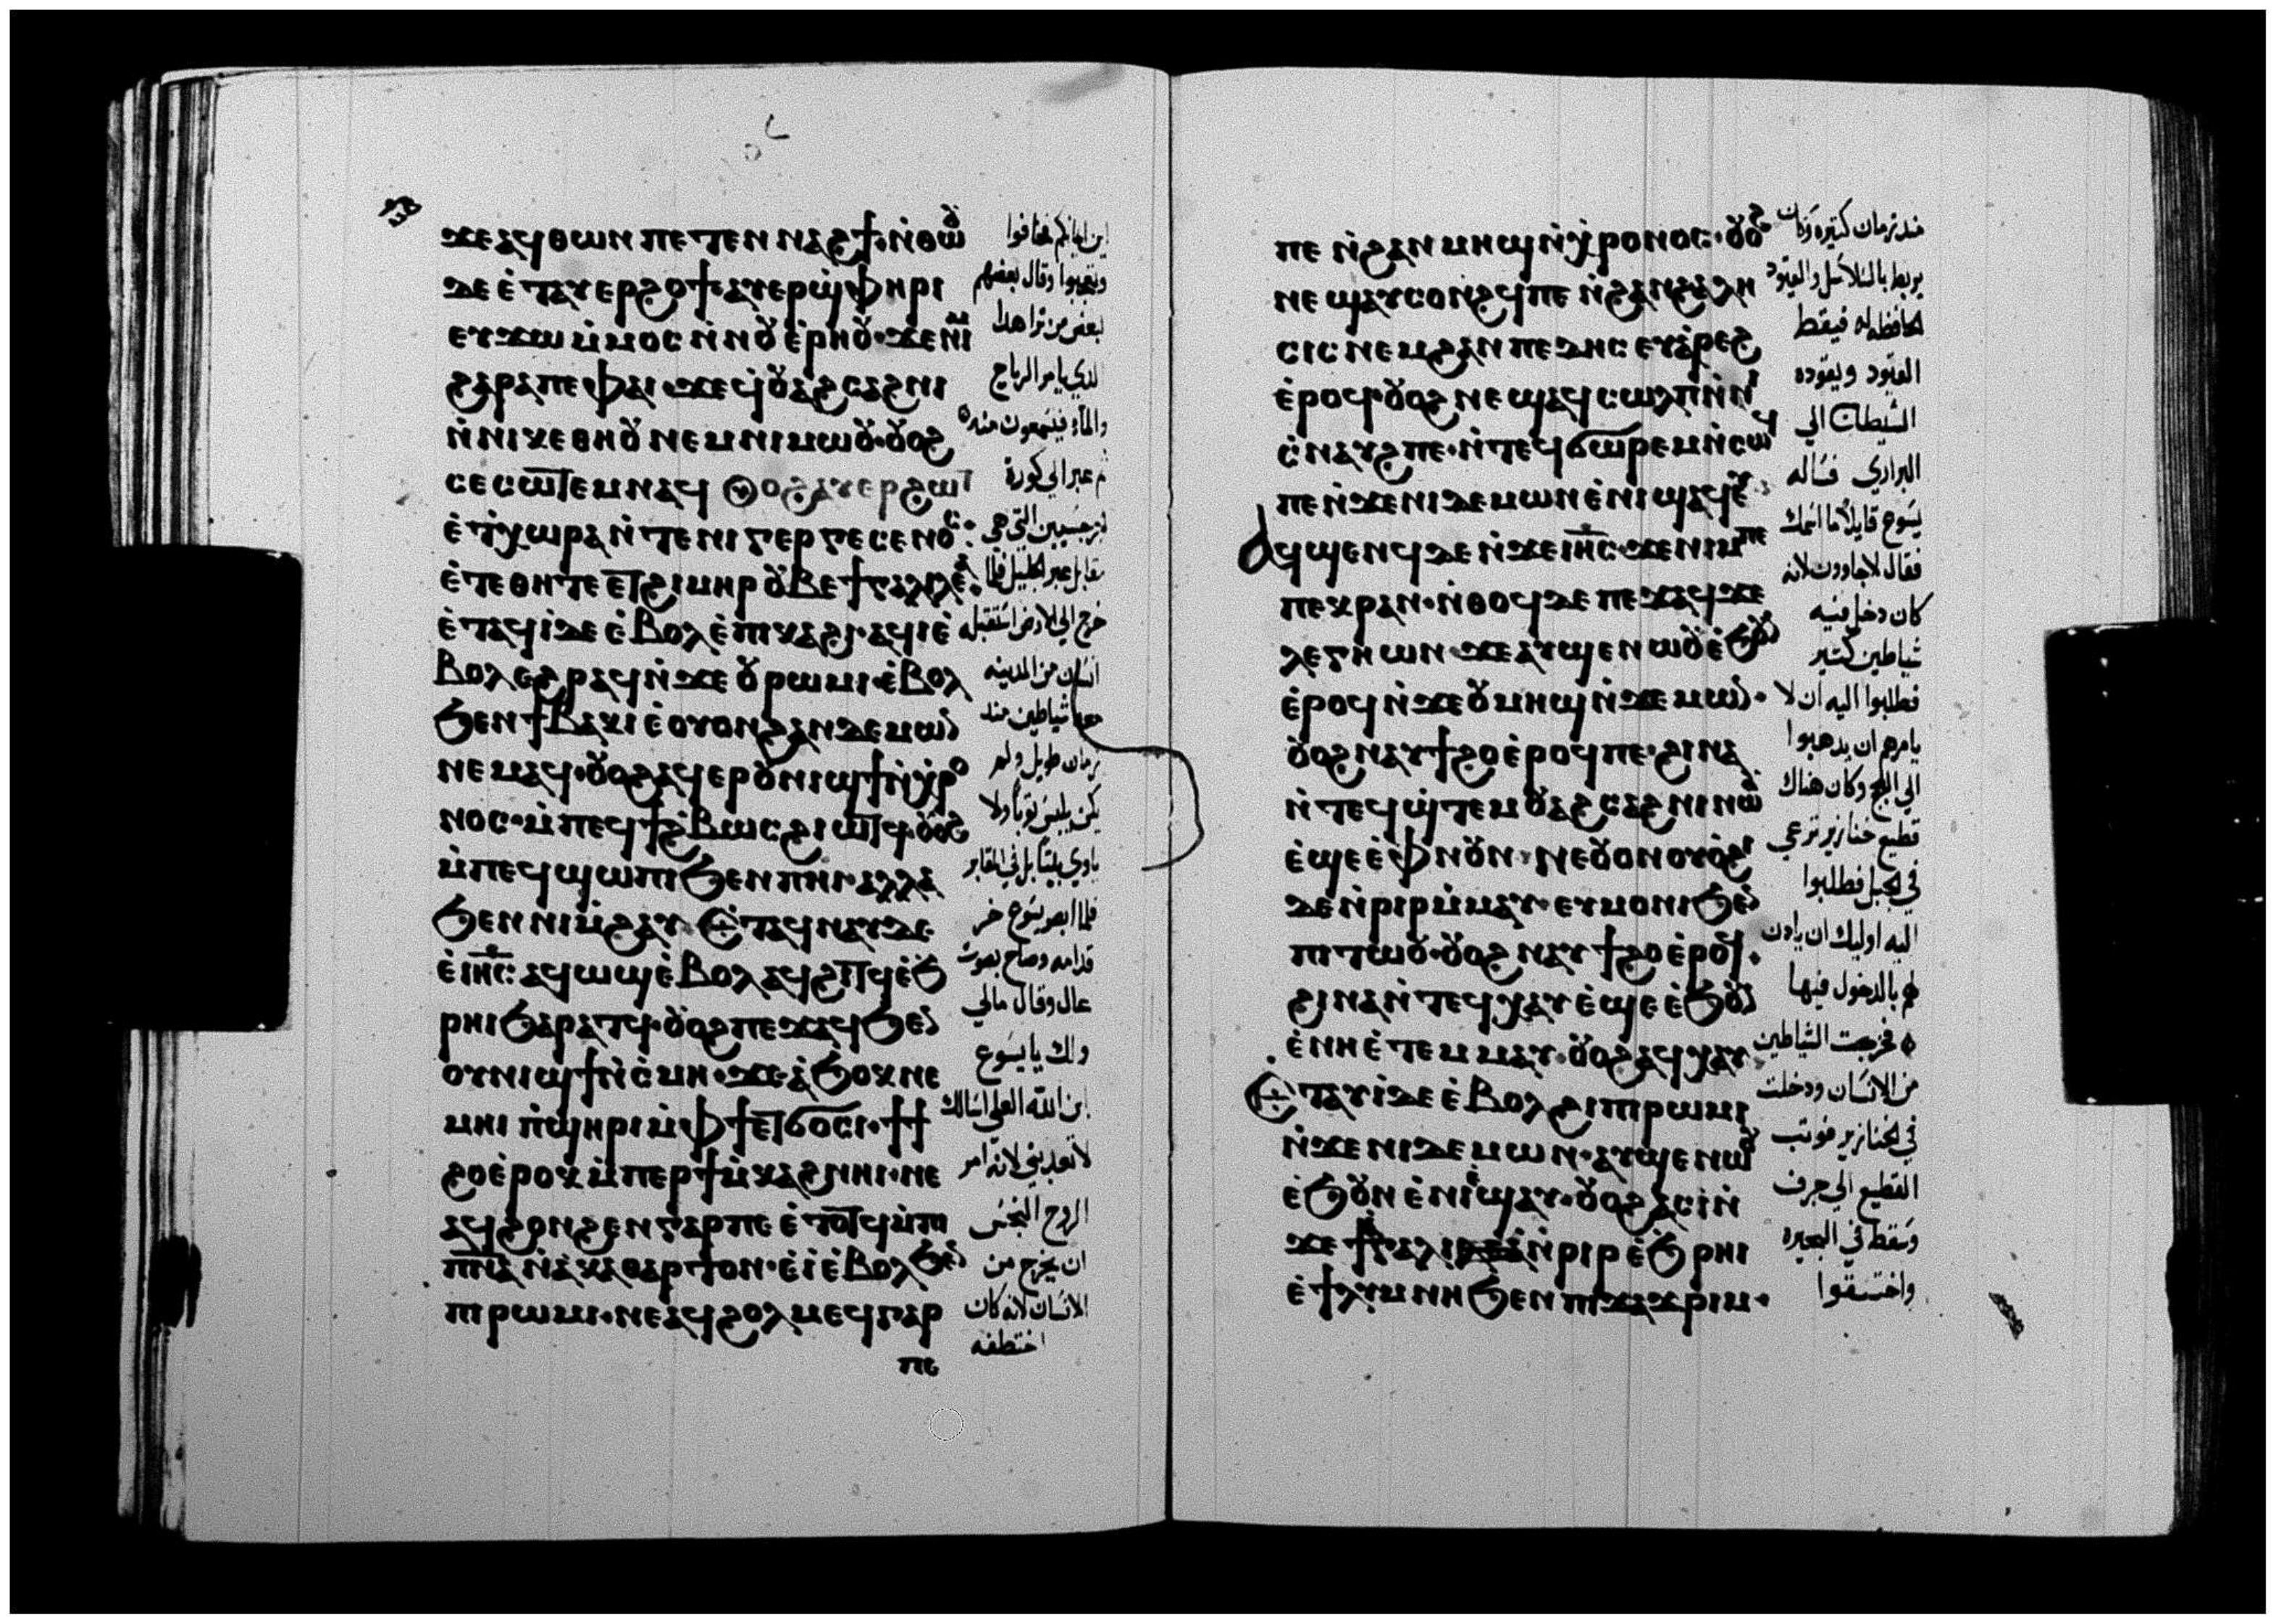 ϫⲉⲁϥⲑⲱⲛ ⲡⲉⲧⲉⲛ ⲛⲁϩϯ· ⲛ̇ⲑⲱⲟⲩ
ⲇⲉ ⲉ̇ⲧⲁⲩⲉⲣϩⲟϯ· ⲁⲩⲉⲣϣ̇ⲫⲏⲣⲓ
ⲉⲩϫⲱ ⲙ̇ⲙⲟⲥ ⲛ̇ⲛⲟⲩ ⲉ̇ⲣⲏⲟⲩ· ϫⲉⲛⲓⲙ
ϩⲁⲣⲁⲡⲉ ⲫⲁⲓ· ϫⲉϥⲟⲩⲁϩⲥⲁϩⲛⲓ
ⲛ̇ⲛⲓⲕⲉⲑⲏⲟⲩ ⲛⲉⲙⲛⲓⲙⲱⲟⲩ· ⲟⲩⲟϩ
ⲥⲉⲥⲱⲧⲉⲙ ⲛⲁϥ ⲟⲩⲟϩ ⲁⲩⲉⲣϩⲱⲧ
ⲉ̇ⲧ̇ⲭⲱⲣⲁ ⲛ̇ⲧⲉⲛⲓ ⲅⲉⲣⲅⲉⲥⲉⲛⲟⲥ·
ⲉ̇ⲧⲉⲑⲏⲧⲉ ⲉⲧϩⲓⲙⲏⲣ ⲟⲩⲃⲉ ϯⲅⲁⲗⲓⲗⲉⲁ·
ⲉ̇ⲧⲁϥⲓ̇ ⲇⲉ ⲉ̇ⲃⲟⲗ ⲉ̇ⲡⲓⲕⲁϩⲓ· ⲁϥⲓ ⲉ̇
ⲃⲟⲗ ⲉϩⲣⲁϥ ⲛ̇ϫⲉ ⲟⲩⲣⲱⲙⲓ· ⲉ̇ⲃⲟⲗ
ϧⲉⲛϯⲃⲁⲕⲓ ⲉ̇ⲟⲩⲟⲛϩⲁⲛⲇⲉⲙⲱⲛ
ⲛⲉⲙⲁϥ· ⲟⲩⲟϩ ⲁϥⲉⲣⲟⲩⲛⲓϣϯⲛ̇ⲭ̇ⲣⲟ
ⲛⲟⲥ· ⲙ̇ⲡⲉϥϯϩ̇ⲃⲱⲥ ϩⲓⲱⲧϥ· ⲟⲩⲟϩ
ⲙ̇ⲡⲉϥϣⲱⲡⲓ ϧⲉⲛ ⲡⲏⲓ· ⲁⲗⲗⲁ
ϧⲉⲛ ⲛⲓⲙ̇ϩⲁⲩ· ⲉ̇ⲧⲁϥⲛⲁⲩ ⲇⲉ
ⲉ̇ⲓⲏⲥ· ⲁϥⲱϣ ⲉ̇ⲃⲟⲗ ⲁϥϩⲓⲧϥ ⲉ̇ϧ
ⲣⲏⲓ ϧⲁⲣⲁⲧϥ· ⲟⲩⲟϩ ⲡⲉϫⲁϥ ϧⲉⲛ
ⲟⲩⲛⲓϣϯⲛ̇ⲥ̇ⲙⲏ· ϫⲉ ⲁ̇ϧⲟⲕ ⲛⲉ
ⲙⲏⲓ ⲡ̇ϣⲏⲣⲓ ⲙ̇ⲫϯ ⲉⲧϭⲟⲥⲓ· ϯϯ
ϩⲟ ⲉ̇ⲣⲟⲕ ⲙ̇ⲡⲉⲣϯⲙ̇ⲕⲁϩ ⲛⲏⲓ· ⲛⲉ
ⲁϥϩⲟⲛϩⲉⲛ ⲅⲁⲣⲡⲉ ⲉ̇ⲧⲟⲧϥ ⲙ̇ⲡⲓ
ⲡⲛⲁ ⲛ̇ⲁ̇ⲕⲁⲑⲁⲣⲧⲟⲛ· ⲉ̇ⲓ̇ ⲉ̇ⲃⲟⲗ ϧⲉⲛ
ⲡⲓⲣⲱⲙⲓ· ⲛⲉⲁϥϩⲟⲗⲙⲉϥ ⲅⲁⲣ
ⲡⲉ
اين ايمانكم فخافوا
وتعجبوا وقال بعضهم
لبعض من ترا هدا
الدي يامر الرياح
والماء فيسمعون منه
ثم عبر الي كورة
الجرجسيين التي هي
مقابل عبر الجليل فلما
خرج الي الارض استقبله
انسان من المدينه
معه شياطين مند
زمان طويل ولم
يكن يلبس توبا ولا
ياوي بيتا بل في المقابر
فلما ابصر يسوع خر
قدامه وصاح بصوت
عال وقال مالي
ولك يا يسوع
ابن الله العلي اسالك
لا تعدبني لانه امر
الروح النجس
ان يخرج من
الانسان لانه كان
اختطفه
ⲡⲉ ⲛ̇ϩⲁⲛ ⲙⲏϣ ⲛ̇ⲭ̇ⲣⲟⲛⲟⲥ· ⲟⲩⲟϩ
ⲛⲉ ϣⲁⲩⲥⲟⲛϩϥ ⲡⲉ ⲛ̇ϩⲁⲛϩⲁⲗⲏ
ⲥⲓⲥ ⲛⲉⲙϩⲁⲛ ⲡⲉⲇⲏⲥ ⲉⲩⲁ̇ⲣⲉϩ
ⲉ̇ⲣⲟϥ· ⲟⲩⲟϩ ⲛⲉ ϣⲁϥⲥⲱⲗⲡ ⲛ̇ⲛⲓ
ⲥ̇ⲛⲁⲩϩ ⲡⲉ· ⲛ̇ⲧⲉϥⲥⲱⲣⲉⲙ ⲛ̇ⲥⲱϥ
ⲡⲉ ⲛ̇ϫⲉⲛⲓⲇⲉⲙⲱⲛ ⲉ̇ⲛⲓ ϣⲁϥⲉⲩ
ⲁϥϣⲉⲛϥ ⲇⲉ ⲛ̇ϫⲉⲓⲏⲥ· ϫⲉ ⲛⲓⲙ ⲡⲉ
ⲡⲉⲕⲣⲁⲛ· ⲛ̇ⲑⲟϥ ⲇⲉ ⲡⲉϫⲁϥ ϫⲉ
ⲗⲉⲅⲏⲱⲛ· ϫⲉ ⲁⲩϣⲉⲛⲱⲟⲩ ⲉ̇ϧⲟⲩⲛ
ⲉ̇ⲣⲟϥ ⲛ̇ϫⲉ ⲟⲩⲙⲏϣ ⲛ̇ⲇⲉⲙⲱⲛ·
ⲟⲩⲟϩ ⲛⲁⲩϯϩⲟ ⲉ̇ⲣⲟϥ ⲡⲉ· ϩⲓⲛⲁ
ⲛ̇ⲧⲉϥϣ̇ⲧⲉⲙ ⲟⲩⲁϩⲥⲁϩⲛⲓ ⲛⲱⲟⲩ
ⲉ̇ϣⲉ ⲉ̇ⲫⲛⲟⲩⲛ· ⲛⲉⲟⲩⲟⲛ ⲟⲩⲟ̇ϩⲓ
ⲇⲉ ⲛ̇ⲣⲓⲣ ⲙ̇ⲙⲁⲩ· ⲉⲩⲙⲟⲛⲓ ϧⲉⲛ
ⲡⲓⲧⲱⲟⲩ· ⲟⲩⲟϩ ⲛⲁⲩϯϩⲟ ⲉ̇ⲣⲟϥ·
ϩⲓⲛⲁ ⲛ̇ⲧⲉϥⲭⲁⲩ ⲉ̇ϣⲉ ⲉ̇ϧⲟⲩⲛ
ⲉ̇ⲛⲏ ⲉ̇ⲧⲉⲙⲙⲁⲩ· ⲟⲩⲟϩ ⲁϥⲭⲁⲩ·
ⲉ̇ⲧⲁⲩⲓ̇ ⲇⲉ ⲉ̇ⲃⲟⲗ ϩⲓⲡⲓⲣⲱⲙⲓ
ⲛ̇ϫⲉ ⲛⲓⲇⲉⲙⲱⲛ· ⲁⲩϣⲉⲛⲱⲟⲩ
ⲉ̇ϧⲟⲩⲛ ⲉ̇ⲛⲓⲉ̇ϣⲁⲩ· ⲟⲩⲟϩ ⲁⲥⲓ̇ ⲛ̇
ϫⲉ ⲛ̇ⲣⲓⲣ ⲉ̇ϧⲣⲏⲓ
ⲉ̇ϯⲗⲩⲙⲛⲏ ϧⲉⲛ ⲡⲓϫⲁϫⲣⲓⲙ·
مند زمان كتيره وكان
يربط بالسلاسل والقيود
الحافظه له فيقطع
القيود ويقوده
الشيطان الي
البراري فساله
يسوع قايلا ما اسمك
فقال لاجاوون لانه
كان دخل فيه
شياطين كتير
فطلبوا اليه ان لا
يامرهم ان يدهبوا
الي اللج وكان هناك
قطيع خنازير ترعي
في الجبل فطلبوا
اليه اوليك ان يادن
لهم بالدخول فيها
فخرجت الشياطين
من الانسان ودخلت
في الخنازير فوتب
القطيع الي جرف
وسقط في البحيره
واختنقوا